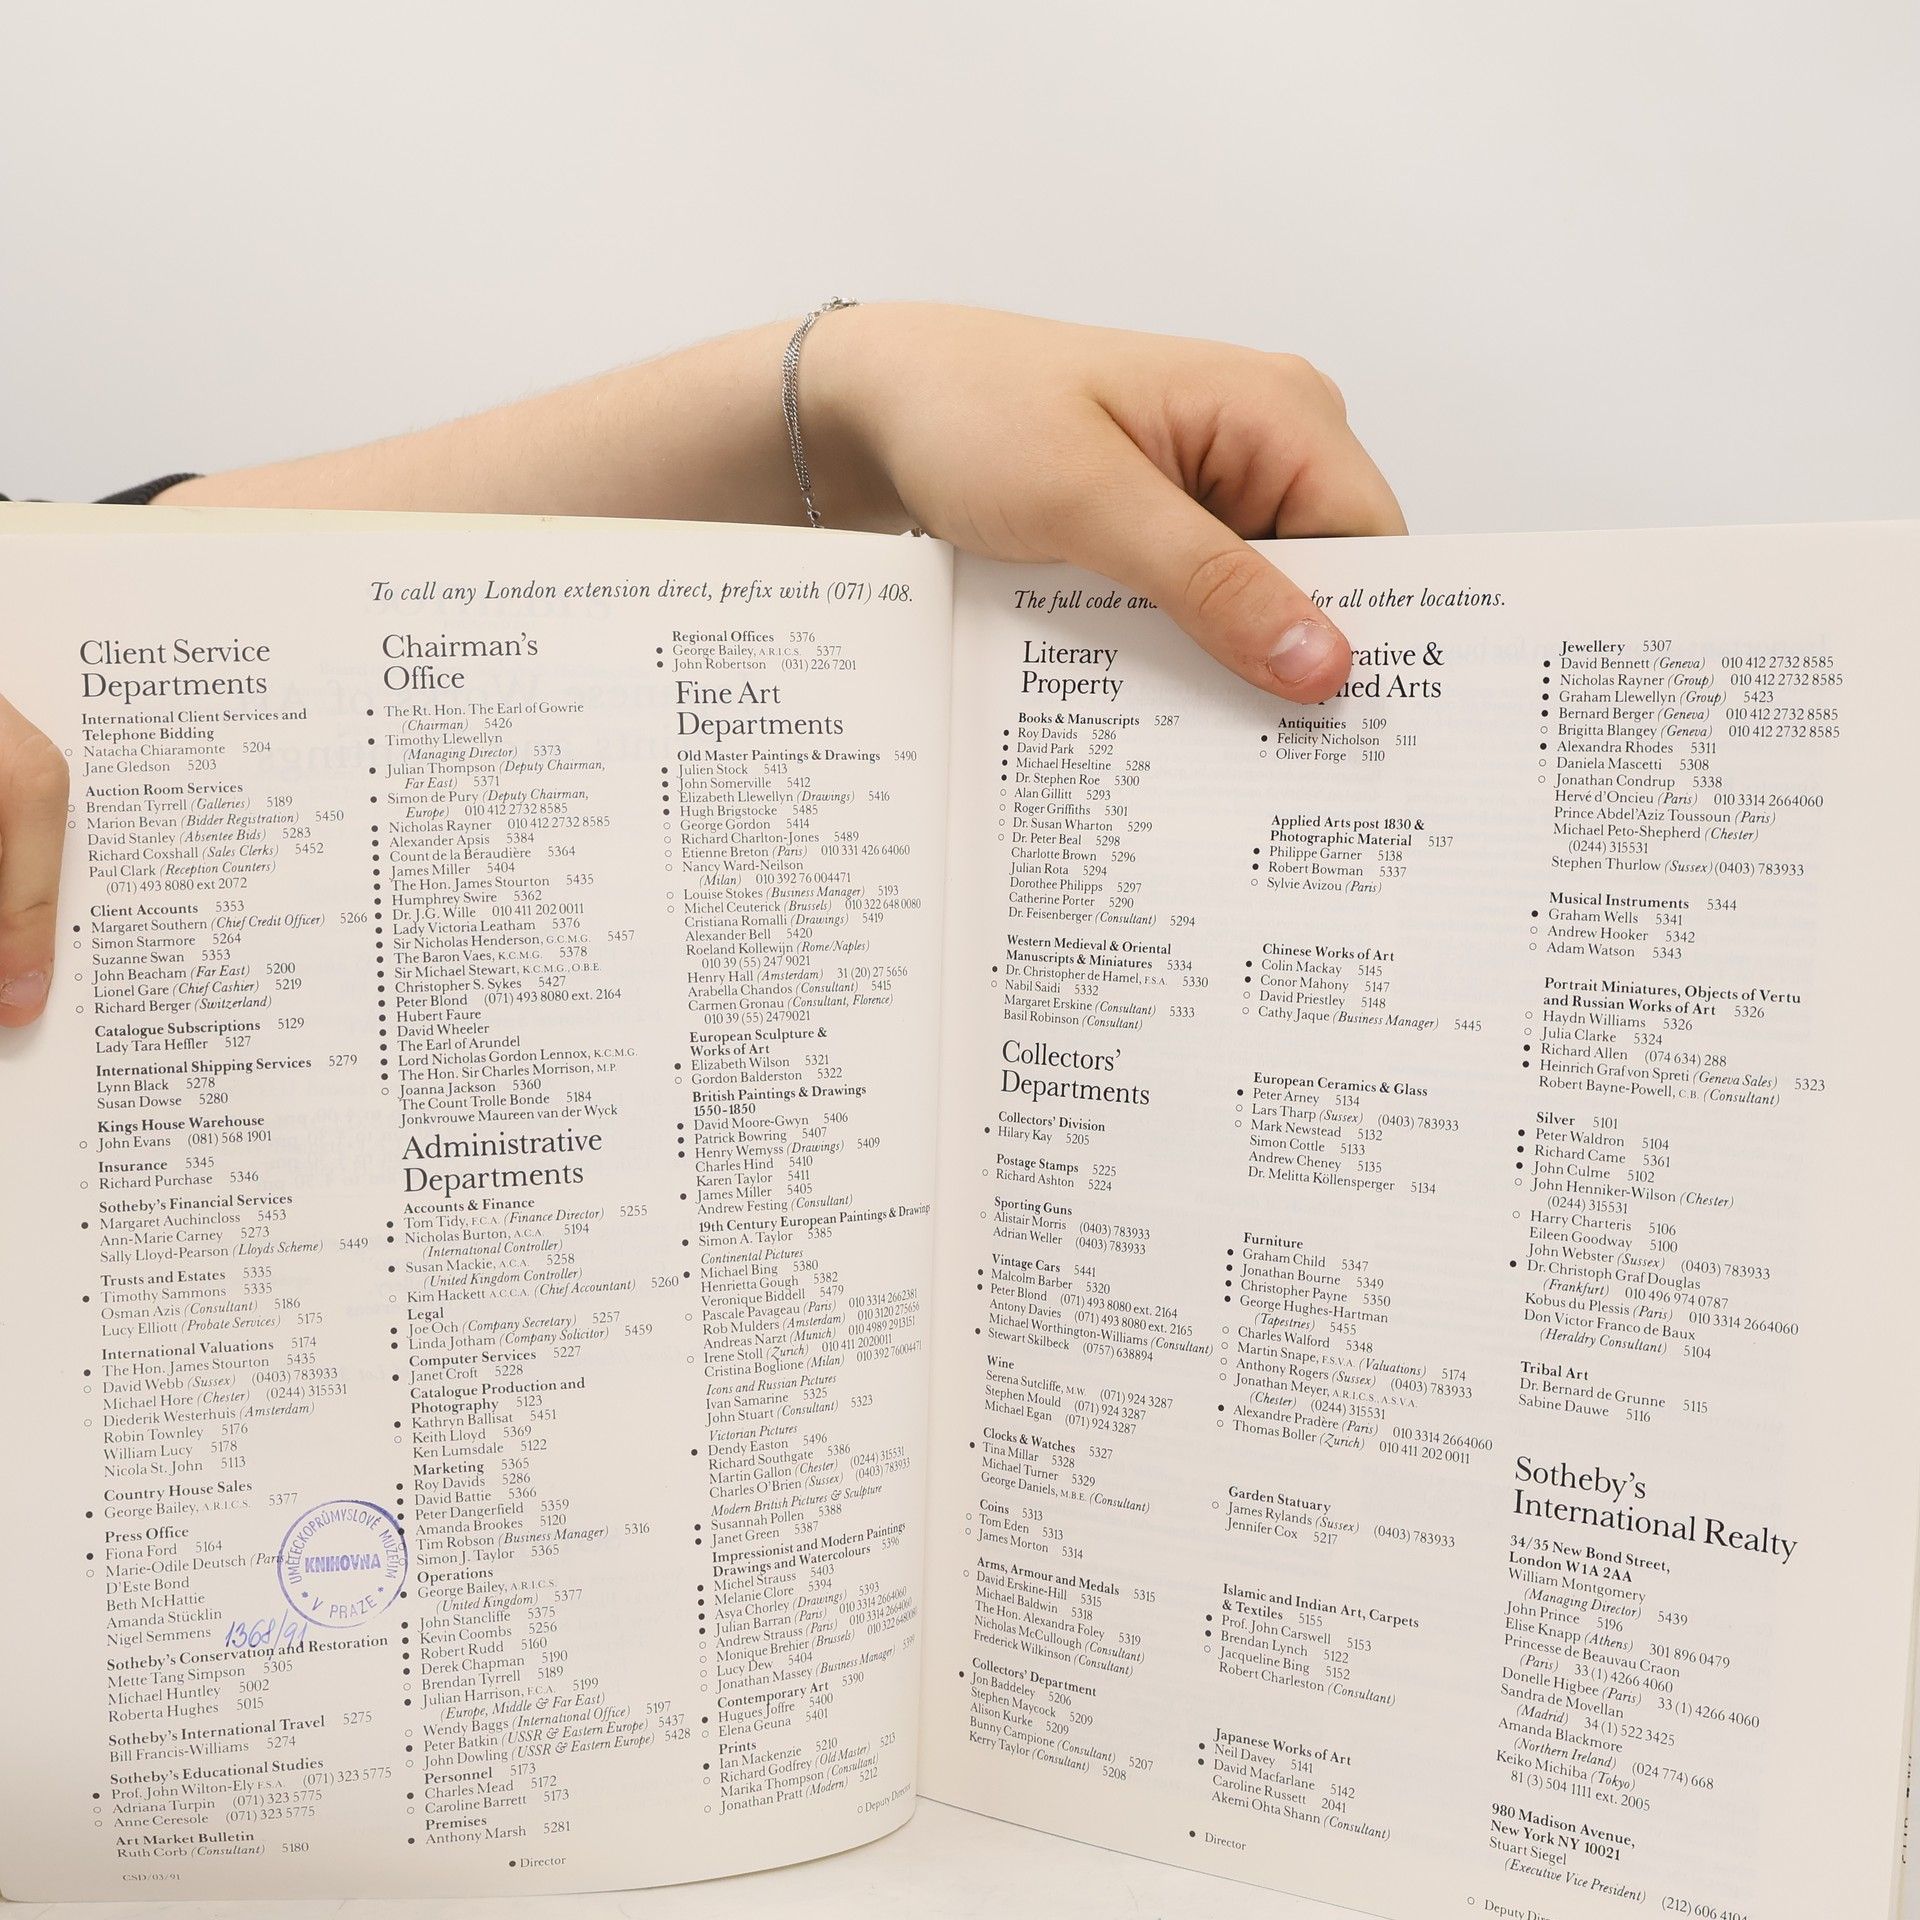 To call any London extension direct, prefix with (071) 408.
Client Service
Departments
International Client Services and
Telephone Bidding
○ Natacha Chiaramonte 5204
Jane Gledson 5203
Auction Room Services
○ Brendan Tyrrell (Galleries) 5189
○ Marion Bevan (Bidder Registration) 5450
David Stanley (Absentee Bids) 5283
Richard Coxshall (Sales Clerks) 5452
Paul Clark (Reception Counters)
(071) 493 8080 ext 2072
Client Accounts 5353
● Margaret Southern (Chief Credit Officer) 5266
○ Simon Starmore 5264
Suzanne Swan 5353
○ John Beacham (Far East) 5200
Lionel Gare (Chief Cashier) 5219
○ Richard Berger (Switzerland)
Catalogue Subscriptions 5129
Lady Tara Heffler 5127
International Shipping Services 5279
Lynn Black 5278
Susan Dowse 5280
Kings House Warehouse
○ John Evans (081) 568 1901
Insurance 5345
○ Richard Purchase 5346
Sotheby's Financial Services
● Margaret Auchincloss 5453
Ann-Marie Carney 5273
Sally Lloyd-Pearson (Lloyds Scheme) 5449
Trusts and Estates 5335
● Timothy Sammons 5335
Osman Azis (Consultant) 5186
Lucy Elliott (Probate Services) 5175
International Valuations 5174
● The Hon. James Stourton 5435
○ David Webb (Sussex) (0403) 783933
Michael Hore (Chester) (0244) 315531
○ Diederik Westerhuis (Amsterdam)
Robin Townley 5176
William Lucy 5178
Nicola St. John 5113
Country House Sales
● George Bailey, A.R.I.C.S. 5377
Press Office
● Fiona Ford 5164
○ Marie-Odile Deutsch (Paris
D'Este Bond
Beth McHattie
Amanda Stücklin
Nigel Semmens
1368/91
Sotheby's Conservation and Restoration
Mette Tang Simpson 5305
Michael Huntley 5002
Roberta Hughes 5015
Sotheby's International Travel 5275
Bill Francis-Williams 5274
Sotheby's Educational Studies
● Prof. John Wilton-Ely F.S.A. (071) 323 5775
○ Adriana Turpin (071) 323 5775
○ Anne Ceresole (071) 323 5775
Art Market Bulletin
Ruth Corb (Consultant) 5180
CSD/03/91
UMĚLECKOPRŮMYSLOVÉ MUZEUM
KNIHOVNA
V PRAZE
Chairman's
Office
● The Rt. Hon. The Earl of Gowrie
(Chairman) 5426
● Timothy Llewellyn
(Managing Director) 5373
● Julian Thompson (Deputy Chairman,
Far East) 5371
● Simon de Pury (Deputy Chairman,
Europe) 010 412 2732 8585
● Nicholas Rayner 010 412 2732 8585
● Alexander Apsis 5384
● Count de la Béraudière 5364
● James Miller 5404
● The Hon. James Stourton 5435
● Humphrey Swire 5362
● Dr. J.G. Wille 010 411 202 0011
● Lady Victoria Leatham 5376
● Sir Nicholas Henderson, G.C.M.G. 5457
● The Baron Vaes, K.C.M.G. 5378
● Sir Michael Stewart, K.C.M.G., O.B.E.
● Christopher S. Sykes 5427
● Peter Blond (071) 493 8080 ext. 2164
● Hubert Faure
● David Wheeler
● The Earl of Arundel
● Lord Nicholas Gordon Lennox, K.C.M.G.
● The Hon. Sir Charles Morrison, M.P.
○ Joanna Jackson 5360
The Count Trolle Bonde 5184
Jonkvrouwe Maureen van der Wyck
Administrative
Departments
Accounts & Finance
● Tom Tidy, F.C.A. (Finance Director) 5255
● Nicholas Burton, A.C.A. 5194
(International Controller)
● Susan Mackie, A.C.A. 5258
(United Kingdom Controller)
○ Kim Hackett A.C.C.A. (Chief Accountant) 5260
Legal
● Joe Och (Company Secretary) 5257
● Linda Jotham (Company Solicitor) 5459
Computer Services 5227
● Janet Croft 5228
Catalogue Production and
Photography 5123
● Kathryn Ballisat 5451
○ Keith Lloyd 5369
Ken Lumsdale 5122
Marketing 5365
● Roy Davids 5286
● David Battie 5366
● Peter Dangerfield 5359
● Amanda Brookes 5120
Tim Robson (Business Manager) 5316
Simon J. Taylor 5365
Operations
● George Bailey, A.R.I.C.S.
(United Kingdom) 5377
● John Stancliffe 5375
● Kevin Coombs 5256
● Robert Rudd 5160
● Derek Chapman 5190
○ Brendan Tyrrell 5189
● Julian Harrison, F.C.A. 5199
(Europe, Middle & Far East)
○ Wendy Baggs (International Office) 5197
● Peter Batkin (USSR & Eastern Europe) 5437
○ John Dowling (USSR & Eastern Europe) 5428
Personnel 5173
● Charles Mead 5172
○ Caroline Barrett 5173
Premises
● Anthony Marsh 5281
● Director
Regional Offices 5376
● George Bailey, A.R.I.C.S. 5377
● John Robertson (031) 226 7201
Fine Art
Departments
Old Master Paintings & Drawings 5490
● Julien Stock 5413
● John Somerville 5412
● Elizabeth Llewellyn (Drawings) 5416
● Hugh Brigstocke 5485
○ George Gordon 5414
○ Richard Charlton-Jones 5489
○ Etienne Breton (Paris) 010 331 426 64060
○ Nancy Ward-Neilson
(Milan) 010 392 76 004471
○ Louise Stokes (Business Manager) 5193
○ Michel Ceuterick (Brussels) 010 322 648 0080
Cristiana Romalli (Drawings) 5419
Alexander Bell 5420
Roeland Kollewijn (Rome/Naples)
010 39 (55) 247 9021
Henry Hall (Amsterdam) 31 (20) 27 5656
Arabella Chandos (Consultant) 5415
Carmen Gronau (Consultant, Florence)
010 39 (55) 2479021
European Sculpture &
Works of Art
● Elizabeth Wilson 5321
○ Gordon Balderston 5322
British Paintings & Drawings
1550-1850
● David Moore-Gwyn 5406
● Patrick Bowring 5407
● Henry Wemyss (Drawings) 5409
Charles Hind 5410
Karen Taylor 5411
● James Miller 5405
Andrew Festing (Consultant)
19th Century European Paintings & Drawings
● Simon A. Taylor 5385
Continental Pictures
● Michael Bing 5380
Henrietta Gough 5382
Veronique Biddell 5479
○ Pascale Pavageau (Paris) 010 3314 2662381
Rob Mulders (Amsterdam) 010 3120 275656
Andreas Narzt (Munich) 010 4989 2913151
○ Irene Stoll (Zurich) 010 411 2020011
Cristina Boglione (Milan) 010 392 7600447
Icons and Russian Pictures
Ivan Samarine 5325
John Stuart (Consultant) 5323
Victorian Pictures
● Dendy Easton 5496
Richard Southgate 5386
Martin Gallon (Chester) (0244) 315531
Charles O'Brien (Sussex) (0403) 783933
Modern British Pictures & Sculpture
● Susannah Pollen 5388
● Janet Green 5387
Impressionist and Modern Paintings
Drawings and Watercolours 5396
● Michel Strauss 5403
● Melanie Clore 5394
● Asya Chorley (Drawings) 5393
● Julian Barran (Paris) 010 3314 2664060
○ Andrew Strauss (Paris) 010 3314 2664060
○ Monique Brehier (Brussels) 010 322 6480080
○ Lucy Dew 5404
○ Jonathan Massey (Business Manager) 5399
Contemporary Art 5390
● Hugues Joffre 5400
○ Elena Geuna 5401
Prints
● Ian Mackenzie 5210
○ Richard Godfrey (Old Master) 5213
Marika Thompson (Consultant)
○ Jonathan Pratt (Modern) 5212
○ Deputy Director
The full code and
for all other locations.
Literary
Property
Books & Manuscripts 5287
● Roy Davids 5286
● David Park 5292
● Michael Heseltine 5288
● Dr. Stephen Roe 5300
○ Alan Gillitt 5293
○ Roger Griffiths 5301
○ Dr. Susan Wharton 5299
○ Dr. Peter Beal 5298
Charlotte Brown 5296
Julian Rota 5294
Dorothee Philipps 5297
Catherine Porter 5290
Dr. Feisenberger (Consultant) 5294
Western Medieval & Oriental
Manuscripts & Miniatures 5334
● Dr. Christopher de Hamel, F.S.A. 5330
○ Nabil Saidi 5332
Margaret Erskine (Consultant) 5333
Basil Robinson (Consultant)
Collectors'
Departments
Collectors' Division
● Hilary Kay 5205
Postage Stamps 5225
○ Richard Ashton 5224
Sporting Guns
○ Alistair Morris (0403) 783933
Adrian Weller (0403) 783933
Vintage Cars 5441
● Malcolm Barber 5320
● Peter Blond (071) 493 8080 ext. 2164
Antony Davies (071) 493 8080 ext. 2165
Michael Worthington-Williams (Consultant)
● Stewart Skilbeck (0757) 638894
Wine
Serena Sutcliffe, M.W. (071) 924 3287
Stephen Mould (071) 924 3287
Michael Egan (071) 924 3287
Clocks & Watches 5327
● Tina Millar 5328
Michael Turner 5329
George Daniels, M.B.E. (Consultant)
Coins 5313
○ Tom Eden 5313
○ James Morton 5314
Arms, Armour and Medals 5315
○ David Erskine-Hill 5315
Michael Baldwin 5318
The Hon. Alexandra Foley 5319
Nicholas McCullough (Consultant)
Frederick Wilkinson (Consultant)
Collectors' Department
● Jon Baddeley 5206
Stephen Maycock 5209
Alison Kurke 5209
Bunny Campione (Consultant) 5207
Kerry Taylor (Consultant) 5208
rative &
ied Arts
Antiquities 5109
● Felicity Nicholson 5111
○ Oliver Forge 5110
Applied Arts post 1830 &
Photographic Material 5137
● Philippe Garner 5138
● Robert Bowman 5337
○ Sylvie Avizou (Paris)
Chinese Works of Art
● Colin Mackay 5145
● Conor Mahony 5147
○ David Priestley 5148
○ Cathy Jaque (Business Manager) 5445
European Ceramics & Glass
● Peter Arney 5134
○ Lars Tharp (Sussex) (0403) 783933
○ Mark Newstead 5132
Simon Cottle 5133
Andrew Cheney 5135
Dr. Melitta Köllensperger 5134
Furniture
● Graham Child 5347
● Jonathan Bourne 5349
● Christopher Payne 5350
● George Hughes-Hartman
(Tapestries) 5455
○ Charles Walford 5348
○ Martin Snape, F.S.V.A. (Valuations) 5174
○ Anthony Rogers (Sussex) (0403) 783933
○ Jonathan Meyer, A.R.I.C.S., A.S.V.A.
(Chester) (0244) 315531
● Alexandre Pradère (Paris) 010 3314 2664060
○ Thomas Boller (Zurich) 010 411 202 0011
Garden Statuary
○ James Rylands (Sussex) (0403) 783933
Jennifer Cox 5217
Islamic and Indian Art, Carpets
& Textiles 5155
● Prof. John Carswell 5153
● Brendan Lynch 5122
○ Jacqueline Bing 5152
Robert Charleston (Consultant)
Japanese Works of Art
● Neil Davey 5141
● David Macfarlane 5142
Caroline Russett 2041
Akemi Ohta Shann (Consultant)
● Director
Jewellery 5307
● David Bennett (Geneva) 010 412 2732 8585
● Nicholas Rayner (Group) 010 412 2732 8585
● Graham Llewellyn (Group) 5423
● Bernard Berger (Geneva) 010 412 2732 8585
○ Brigitta Blangey (Geneva) 010 412 2732 8585
● Alexandra Rhodes 5311
○ Daniela Mascetti 5308
○ Jonathan Condrup 5338
Hervé d'Oncieu (Paris) 010 3314 2664060
Prince Abdel'Aziz Toussoun (Paris)
Michael Peto-Shepherd (Chester)
(0244) 315531
Stephen Thurlow (Sussex) (0403) 783933
Musical Instruments 5344
● Graham Wells 5341
○ Andrew Hooker 5342
○ Adam Watson 5343
Portrait Miniatures, Objects of Vertu
and Russian Works of Art 5326
○ Haydn Williams 5326
○ Julia Clarke 5324
● Richard Allen (074 634) 288
● Heinrich Graf von Spreti (Geneva Sales) 5323
Robert Bayne-Powell, C.B. (Consultant)
Silver 5101
● Peter Waldron 5104
● Richard Came 5361
● John Culme 5102
○ John Henniker-Wilson (Chester)
(0244) 315531
○ Harry Charteris 5106
Eileen Goodway 5100
John Webster (Sussex) (0403) 783933
● Dr. Christoph Graf Douglas
(Frankfurt) 010 496 974 0787
Kobus du Plessis (Paris) 010 3314 2664060
Don Victor Franco de Baux
(Heraldry Consultant) 5104
Tribal Art
Dr. Bernard de Grunne 5115
Sabine Dauwe 5116
Sotheby's
International Realty
34/35 New Bond Street,
London W1A 2AA
William Montgomery
(Managing Director) 5439
John Prince 5196
Elise Knapp (Athens) 301 896 0479
Princesse de Beauvau Craon
(Paris) 33 (1) 4266 4060
Donelle Higbee (Paris) 33 (1) 4266 4060
Sandra de Movellan
(Madrid) 34 (1) 522 3425
Amanda Blackmore
(Northern Ireland) (024 774) 668
Keiko Michiba (Tokyo)
81 (3) 504 1111 ext. 2005
980 Madison Avenue,
New York NY 10021
Stuart Siegel
(Executive Vice President) (212) 606 4104
○ Deputy Dir